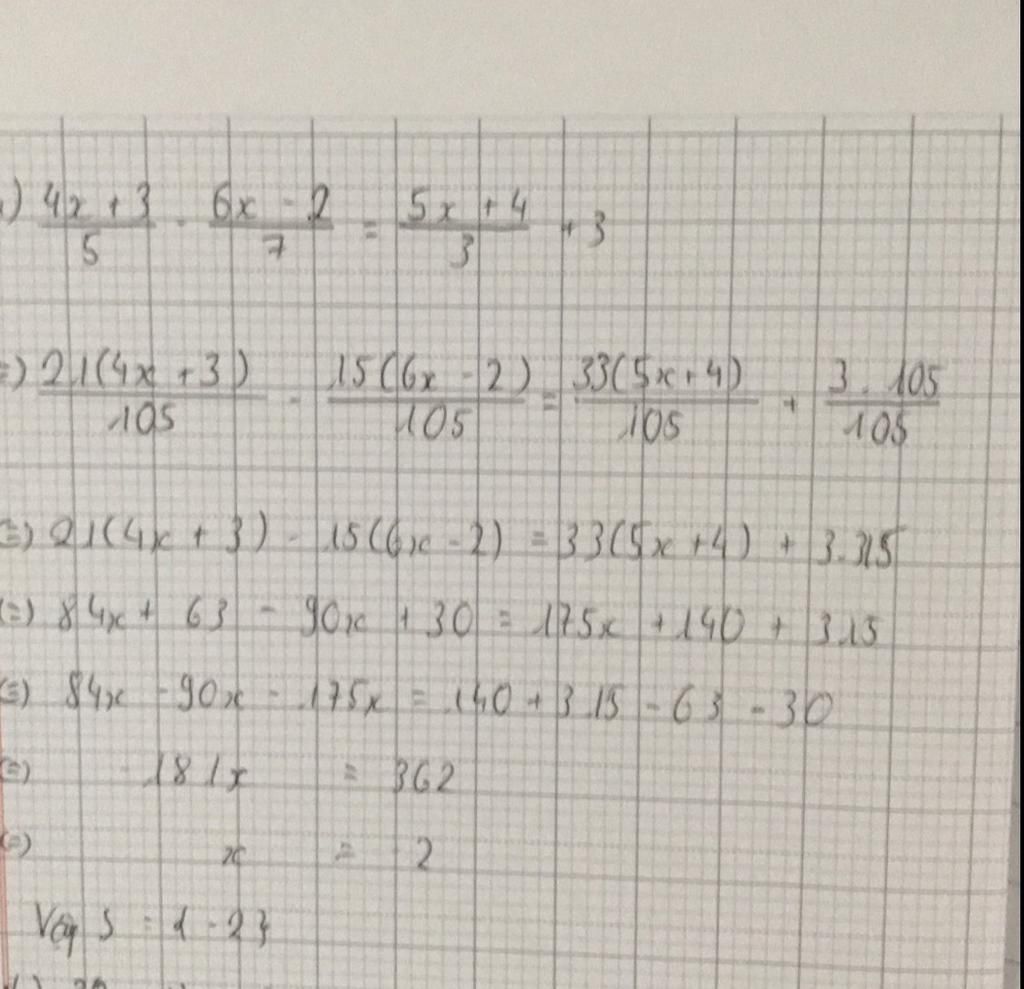 ) (4x + 3)/5 - (6x - 2)/7 = (5x + 4)/3 + 3
=) 21(4x + 3)/105 - 15(6x - 2)/105 = 33(5x + 4)/105 + 3 . 105/105
=) 21(4x + 3) - 15(6x - 2) = 33(5x + 4) + 3.315
(=) 84x + 63 - 90x + 30 = 175x + 140 + 315
(=) 84x - 90x - 175x = 140 + 315 - 63 - 30
(=) - 181x = 362
(=) x = - 2
Vậy S = { - 2 }